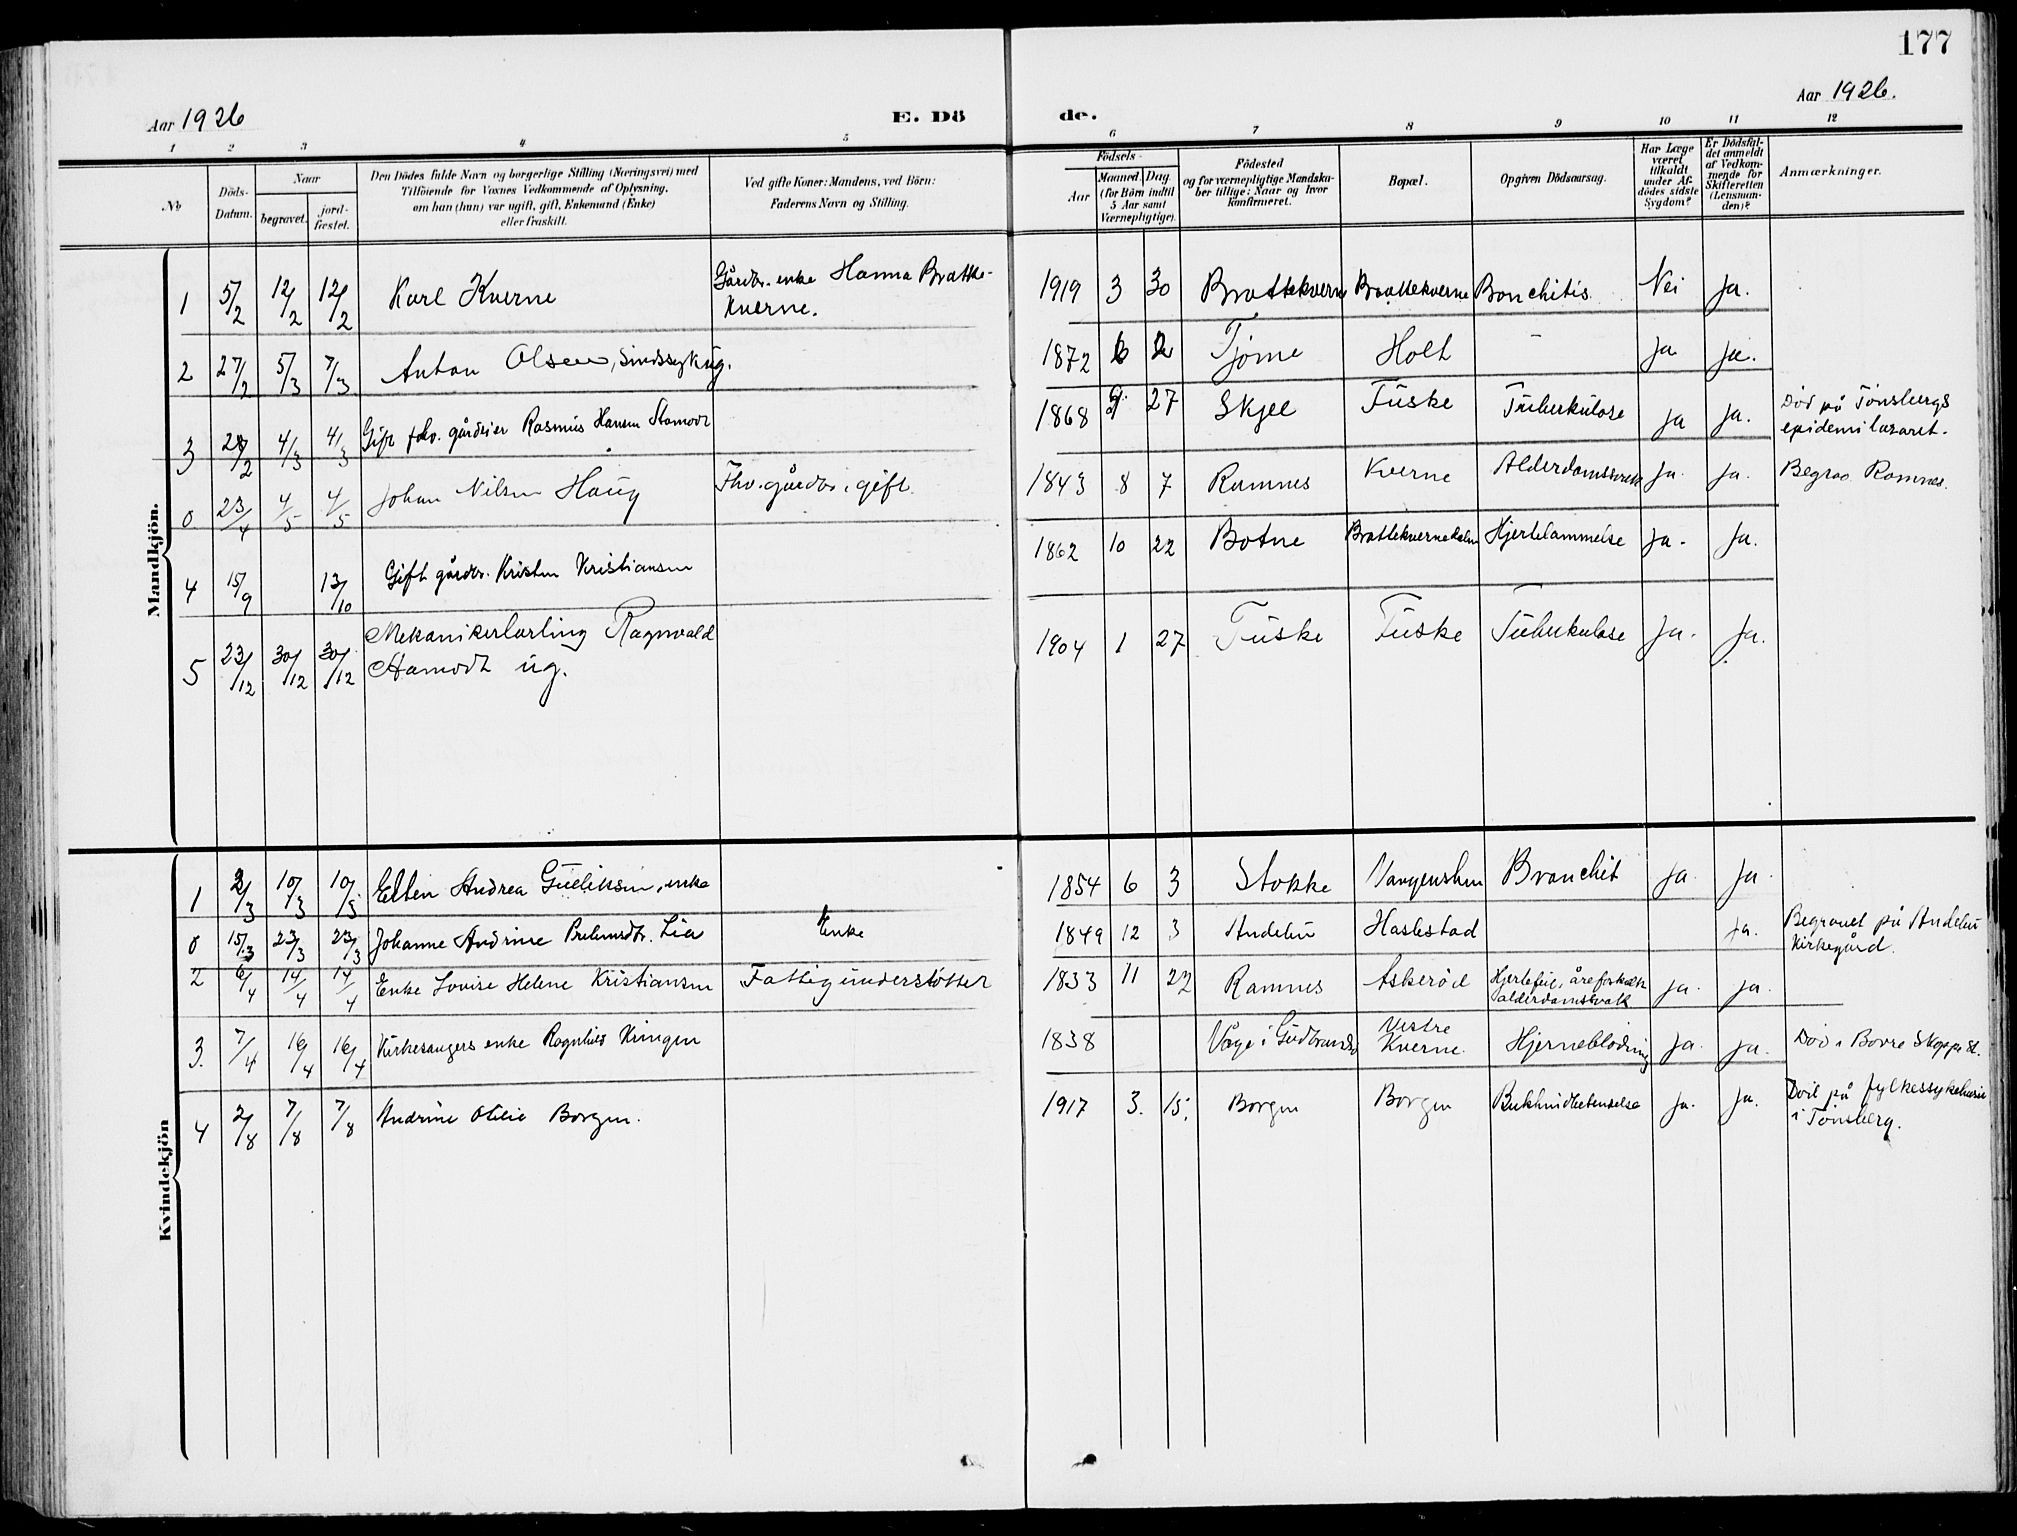 177
Aar 1926
E. Dö
de.
Aar 1926.
1 2 3 4 5 6 7 8 9 10 11 12
No
Döds-
Datum.
Naar
begravet.
jord-
fæstet.
Den Dödes fulde Navn og borgerlige Stilling (Næringsvei) med
Tilföiende for Voxnes Vedkommende af Oplysning,
om han (hun) var ugift, gift, Enkemand (Enke)
eller fraskilt.
Ved gifte Koner: Mandens, ved Börn:
Faderens Navn og Stilling.
Födsels-
Aar
Maaned. Dag.
(for Börn indtil
5 Aar samt
Værnepligtige).
Födested
og for værnepligtige Mandska-
ber tillige: Naar og hvor
konfirmeret.
Bopæl.
Opgiven Dödsaarsag.
Har Læge
været
tilkaldt
under Af-
dödes sidste
Sygdom?
Er Dödsfal-
det anmeldt
af Vedkom-
mende for
Skifteretten
(Lensman-
den)?
Anmærkninger.
Mandkjön.
1 5/2 12/2 12/2 Karl Kverne Gårdbr. enke Hanna Bratte-
kverne. 1919 3 30 Brattekverne Brattekverne Bonchitis Nei Ja.
2 27/2 5/3 7/3 Anton Olsen, Sindssyk ug. 1872 6 2 Tjøme Holt - Ja Ja.
3 28/2 4/3 4/3 Gift fhv. gårdeier Rasmus Hansen Stamodt 1868 9 27 Skjee Fuske Tuberkulose Ja Ja. Død på Tønsbergs
epidemilasaret.
0 23/4 4/5 4/5 Johan Nilsen Haug Fhv. gårdbr. gift. 1843 8 7 Ramnes Kverne Alderdomssvakh Ja. Ja. Begrav Ramnes.
4 15/9 13/10 Gift gårdbr. Kristen Kristiansen 1862 10 22 Botne Brattekvernedalen Hjertelammelse Ja. Ja.
5 23/12 30/12 30/12 Mekanikerlærling Ragnvald
Stamodt ug. 1904 1 27 Fuske Fuske Tuberkulose Ja. Ja.
Kvindekjön
1 2/3 10/3 10/3 Ellen Andrea Gulliksen, enke 1854 6 3 Stokke Vangensten Bronchit Ja. Ja.
0 15/3 23/3 23/3 Johanne Andrine Lia Enke 1849 12 3 Andebu Haslestad Ja. Begravet på Andebu
Kirkegård.
2 6/4 14/4 14/4 Enke Lovise Helene Kristiansen Fattigunderstøttet 1833 11 22 Ramnes Askerød Hjertefeil, åreforkalk
alderdomssvakh Ja. Ja.
3. 7/4 16/4 16/4 Kirkesangers enke Ragnhild Kringen 1838 Våge i Gudbrandsd Vestre
Kverne. Hjerneblødning Ja. Ja. Død i Borre Skoppe st.
4 2/8 7/8 7/8 Andrine Otilie Borgen. 1917 3. 15. Borgen Borgen Bukhindbetendelse Ja. Ja. Død på fylkessykehuset
i Tønsberg.